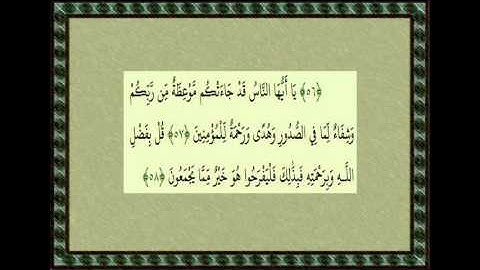 ﴿٥٦﴾ يَا أَيُّهَا النَّاسُ قَدْ جَاءَتْكُم مَّوْعِظَةٌ مِّن رَّبِّكُمْ
وَشِفَاءٌ لِّمَا فِي الصُّدُورِ وَهُدًى وَرَحْمَةٌ لِّلْمُؤْمِنِينَ ﴿٥٧﴾ قُلْ بِفَضْلِ
اللَّـهِ وَبِرَحْمَتِهِ فَبِذَٰلِكَ فَلْيَفْرَحُوا هُوَ خَيْرٌ مِّمَّا يَجْمَعُونَ ﴿٥٨﴾